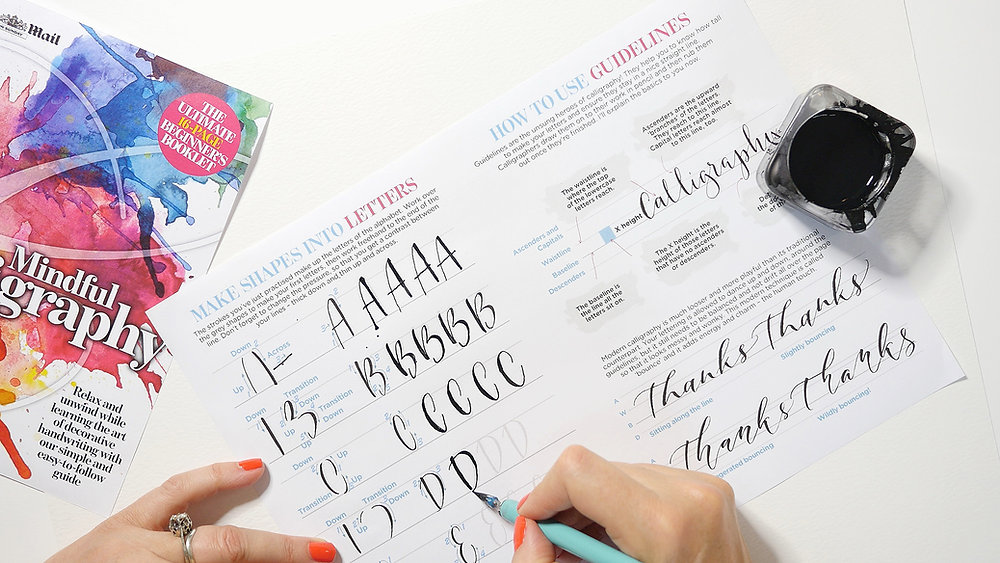 Mail
THE
ULTIMATE
16-PAGE
BEGINNER'S
BOOKLET
Mindful
graphy
Relax and
unwind while
learning the art
of decorative
handwriting with
our simple and
easy-to-follow
guide
MAKE SHAPES INTO LETTERS
The strokes you've just practised make up the letters of the alphabet. Work over
the grey shapes to make your first letters, then work freehand to the end of the
line. Don't forget to change the pressure, so that you get a contrast between
your lines – thick down and thin up and across.
Down
Across
Up
Transition
A A A A A
Down
Down
Up
Up
B B B B B
Down
Up
C C C C C
Transition
Transition
Down
Down
Up
D D D D
E
HOW TO USE GUIDELINES
Guidelines are the unsung heroes of calligraphy! They help you to know how tall
to make your letters and ensure they stay in a nice straight line.
Calligraphers draw them on to their work in pencil and then rub them
out once they're finished. I'll explain the basics to you now.
Ascenders are the upward
'branches' of the letters.
They reach to this line.
Capital letters reach almost
to this line, too.
The waistline is
where the top
of the lowercase
letters reach.
Calligraphy
X height
Ascenders and
Capitals
Waistline
Baseline
Descenders
The X height is the
height of those letters
that do not have ascenders
or descenders.
The baseline is
the line all the
letters sit on.
Modern calligraphy is much looser and more playful than its traditional
counterpart. Your lettering is allowed to move up and down, around the
lines, but it still needs to be balanced and not drift all over the page
so that it looks messy and wonky. This modern technique is called
'bounce' and it adds energy and charm – the human touch.
A
W
D
thanks thanks
Sitting along the line
Slightly bouncing
A
thanks thanks
Wildly bouncing!